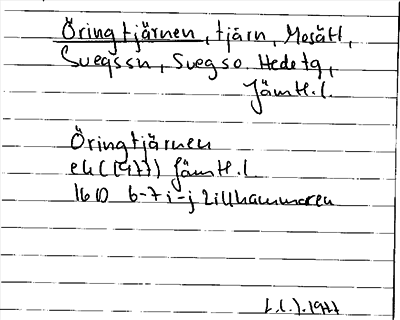 Öringtjärnen, tjärn, Mosätt,
Svegssn, Svegs o. Hede tg,
Jämtl. l.
Öringtjärnen
ek (1977) Jämtl. l
16D 6-7 i-j Lillhammaren
1977